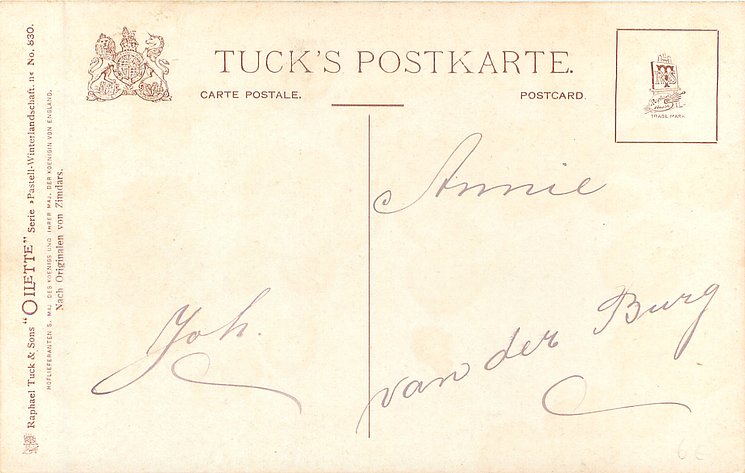 TUCK'S POSTKARTE.
CARTE POSTALE.
POSTCARD.
TRADE MARK
Annie
van der Burg
Joh.
Raphael Tuck & Sons "OILETTE" Serie »Pastell-Winterlandschaft.« No. 830.
HOFLIEFERANTEN S. MAJ. DES KOENIGS UND IHRER MAJ. DER KOENIGIN VON ENGLAND.
Nach Originalen von Zimdars.